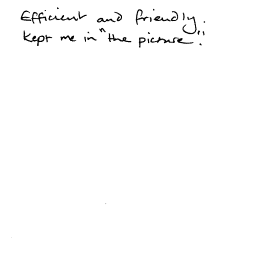 Efficient and friendly.
Kept me in "the picture".